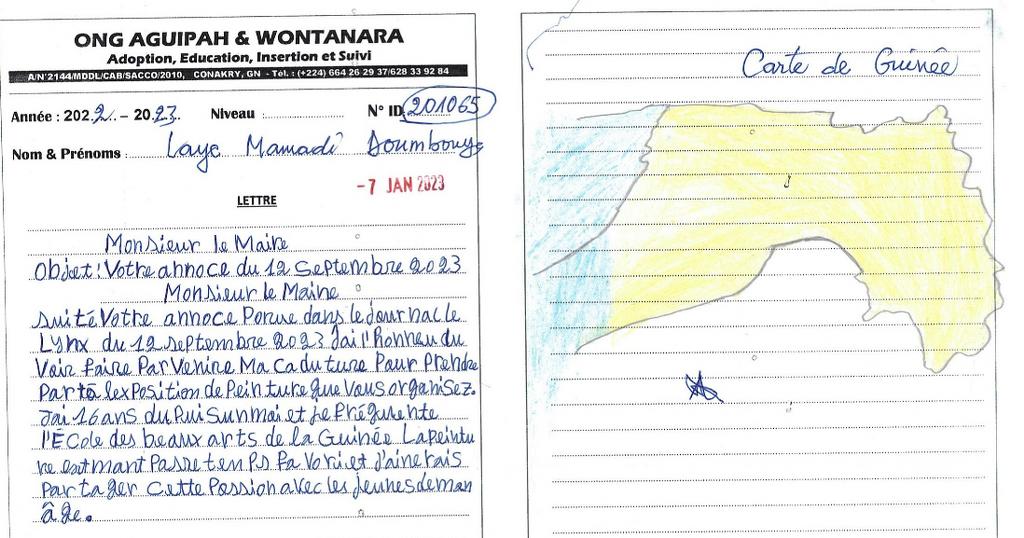 ONG AGUIPAH & WONTANARA
Adoption, Education, Insertion et Suivi
A/N°2144/MDDL/CAB/SACCO/2010, CONAKRY, GN - Tél. : (+224) 664 26 29 37/628 33 92 84
Année : 2022 - 2023. Niveau N° ID 201065
Nom & Prénoms : Laye Mamadi Doumbouya
-7 JAN 2023
LETTRE
Monsieur le Maire
Objet: Votre annoce du 12 Septembre 2023
Monsieur le Maire
suité Votre annoce Porue dans le Journal le
Lynx du 12 septembre 2023 Jai l'honneu du
Voir faire ParVenire Ma caduture Pour Prendre
Partà lexPosition de Peinture que Vous organisez.
Jai 16 ans du Puis un mai et je Fréqunte
l'École des beaux arts de la Guinée La Peintu
re est mant Passe tem Ps Fa Vori et J'ainerais
Partager cette Passion avec les jeunes deman
âge.
Carte de Guinée